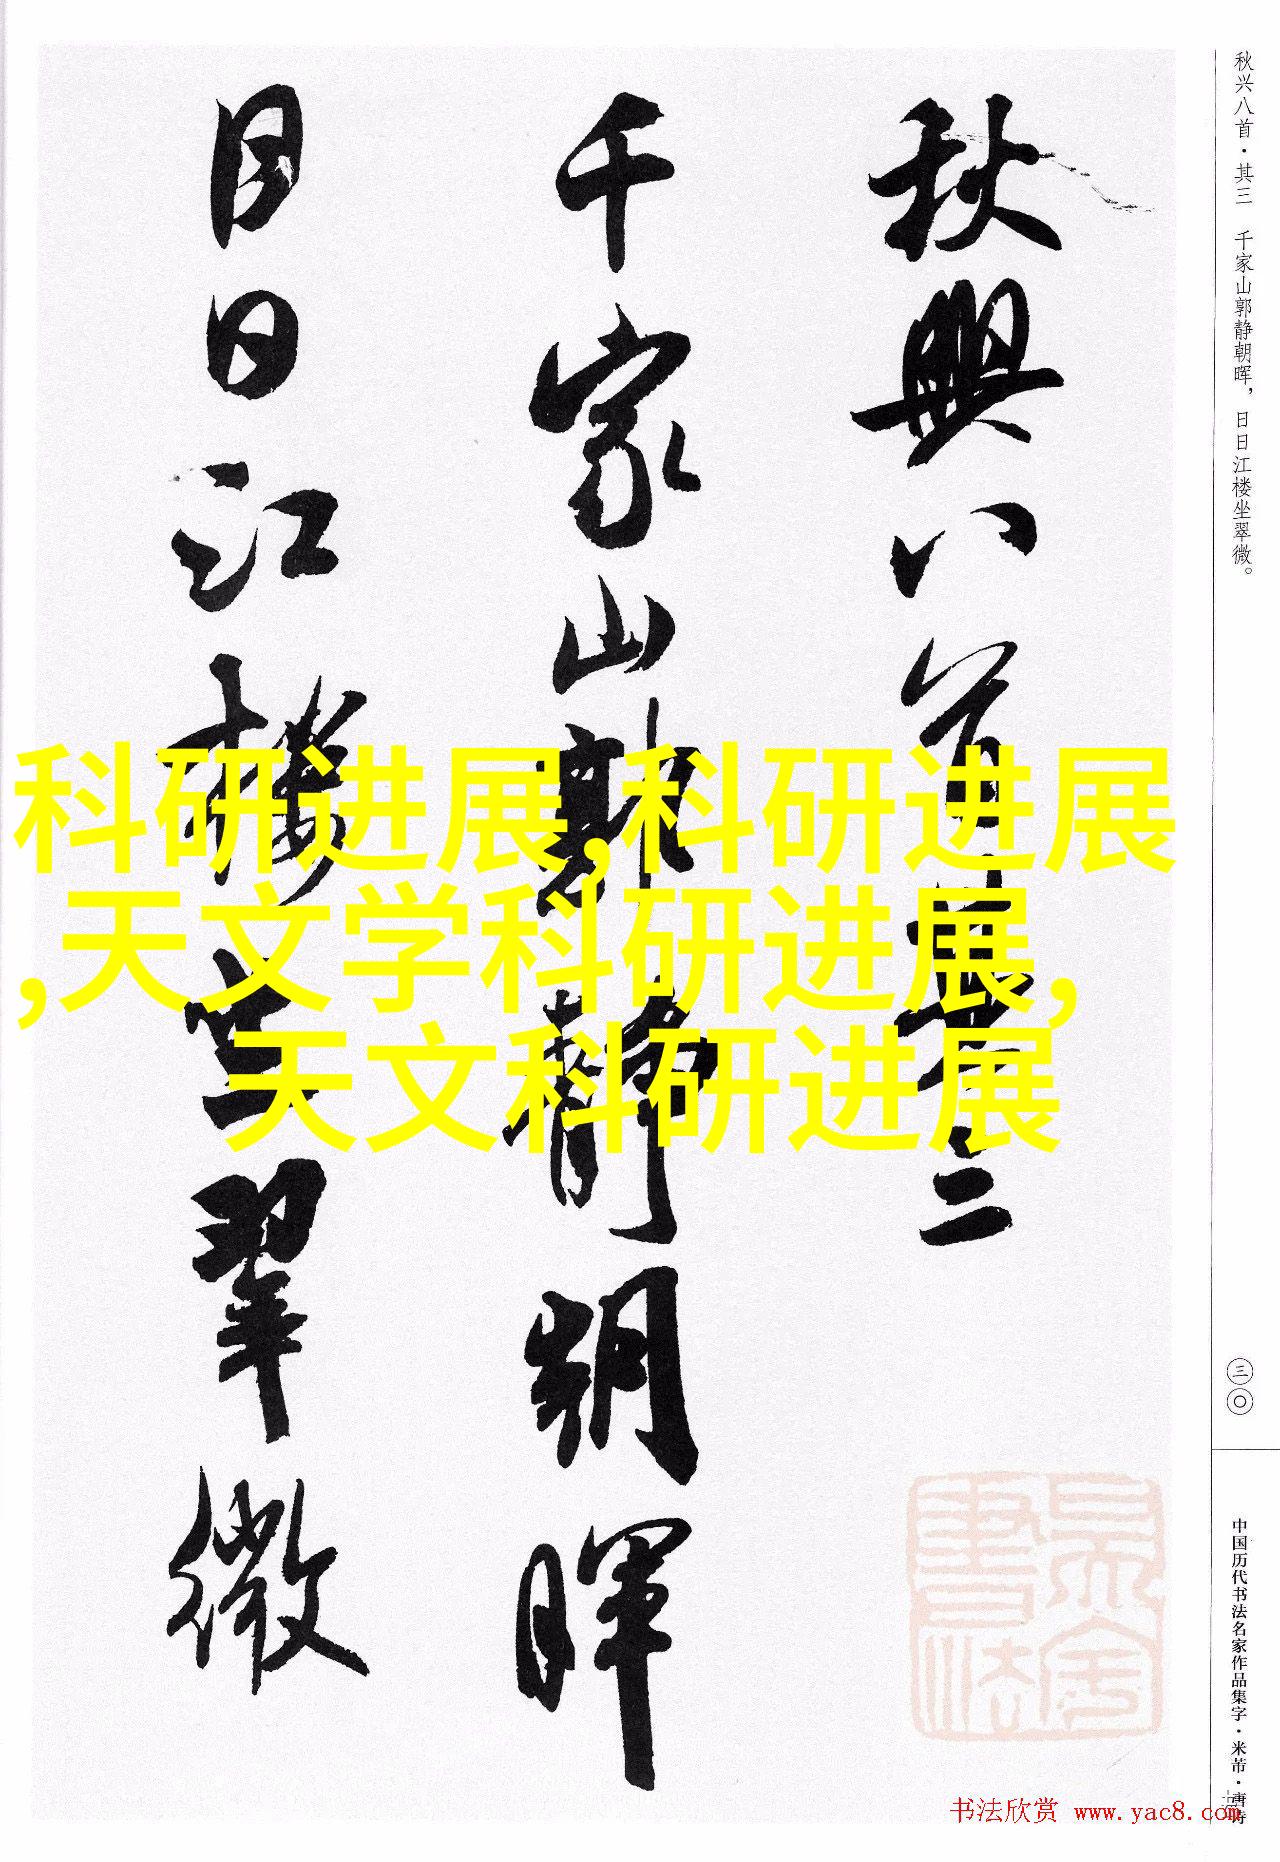 秋兴八首·其三 千家山郭静朝晖，日日江楼坐翠微。
秋興八首其三
千家山郭靜朝暉
日日江樓坐翠微
科研进展,科研进展
,天文学科研进展,
天文科研进展
三〇
中国历代书法名家作品集字·米芾·唐诗
书法欣赏 www.yac8.com